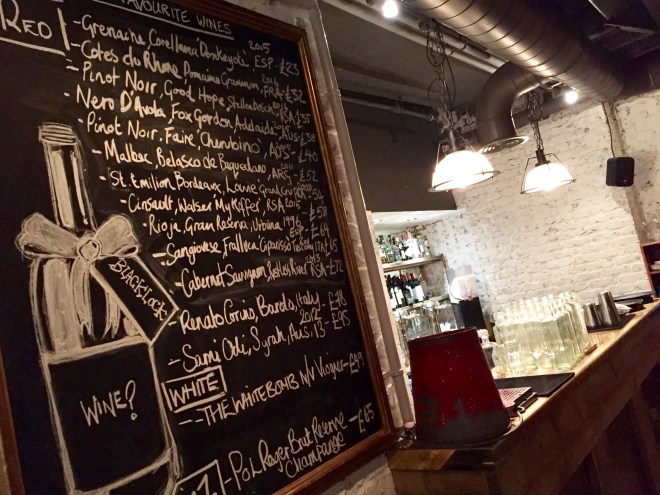 FAVOURITE WINES
RED
- Grenache, Corellana Donkeyoti 2015 ESP - £23
- Cotes du Rhone Domaine Grammon, FRA - £32
- Pinot Noir, Good Hope Stellenbosch RSA £35
- Nero D'Avola, Fox Gordon, Adelaide AUS £38
- Pinot Noir, Faire 'Cherubino' AUS - £40
- Malbec, Belasco de Baquedano, 2011 ARG - £52
- St. Emilion, Bordeaux, Louie Grand Cru
- Cinsault, Walser My Koffer, RSA 2015 - £58
- Rioja, Gran Reserva, Urbina 1996 ESP - £64
- Sangiovese, Fralluca Ciparisso Tuscany ITA
- Cabernet Sauvignon, Restless River 2013 RSA - £72
- Renato Corino, Barolo, Italy - £98
- Sami Odi, Syrah, Aus, 13 - £95
WHITE
- THE WHITE BOMB W/V Viognier - £49
- Pol Roger Brut Reserve Champagne - £65
BLACKLOCK
WINE?